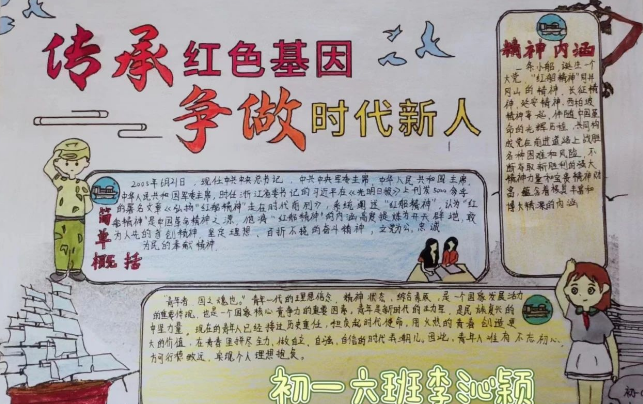 传承红色基因
争做时代新人
精神内涵
一个小船,诞生一个
大党,"红船精神"同井
冈山的精神,长征精
神,延安精神,西柏坡
精神等一起,伴随中国革
命的光辉历程,共同构
成党在前进道路上战胜
各种困难和风险,不
断夺取新胜利的强大
精神力量和宝贵精神财
富
博大精深的内涵
简单概括
2005年6月21日,现任中共中央总书记,中共中央军委主席,中华人民共和国主席,
中华人民共和国军委主席,时任浙江省委书记的习近平在《光明日报》上刊发5000余字
的署名文章《弘扬"红船精神"走在时代前列》,系统阐述"红船精神",认为"红
船精神"是中国革命精神之源,他将"红船精神"的内涵高度提炼为开天辟地、敢
为人先的首创精神,坚定理想、百折不挠的奋斗精神,立党为公、忠诚
为民的奉献精神
"青年者,国之魂也。"青年一代的理想信念,精神状态,综合素质,是一个国家发展活力
的重要体现,也是一个国家核心竞争力的重要因素,青年是新时代的主力,是民族复兴的
中坚力量。现在的青年人已经接过历史重任,担负起时代使命,用火热的青春创造更
大的价值,在青春里拼尽全力,做自立、自强、自信的时代弄潮儿。因此,青年人唯有不忘初心,
方可行稳致远,实现个人理想抱负。
初一六班李沁颖